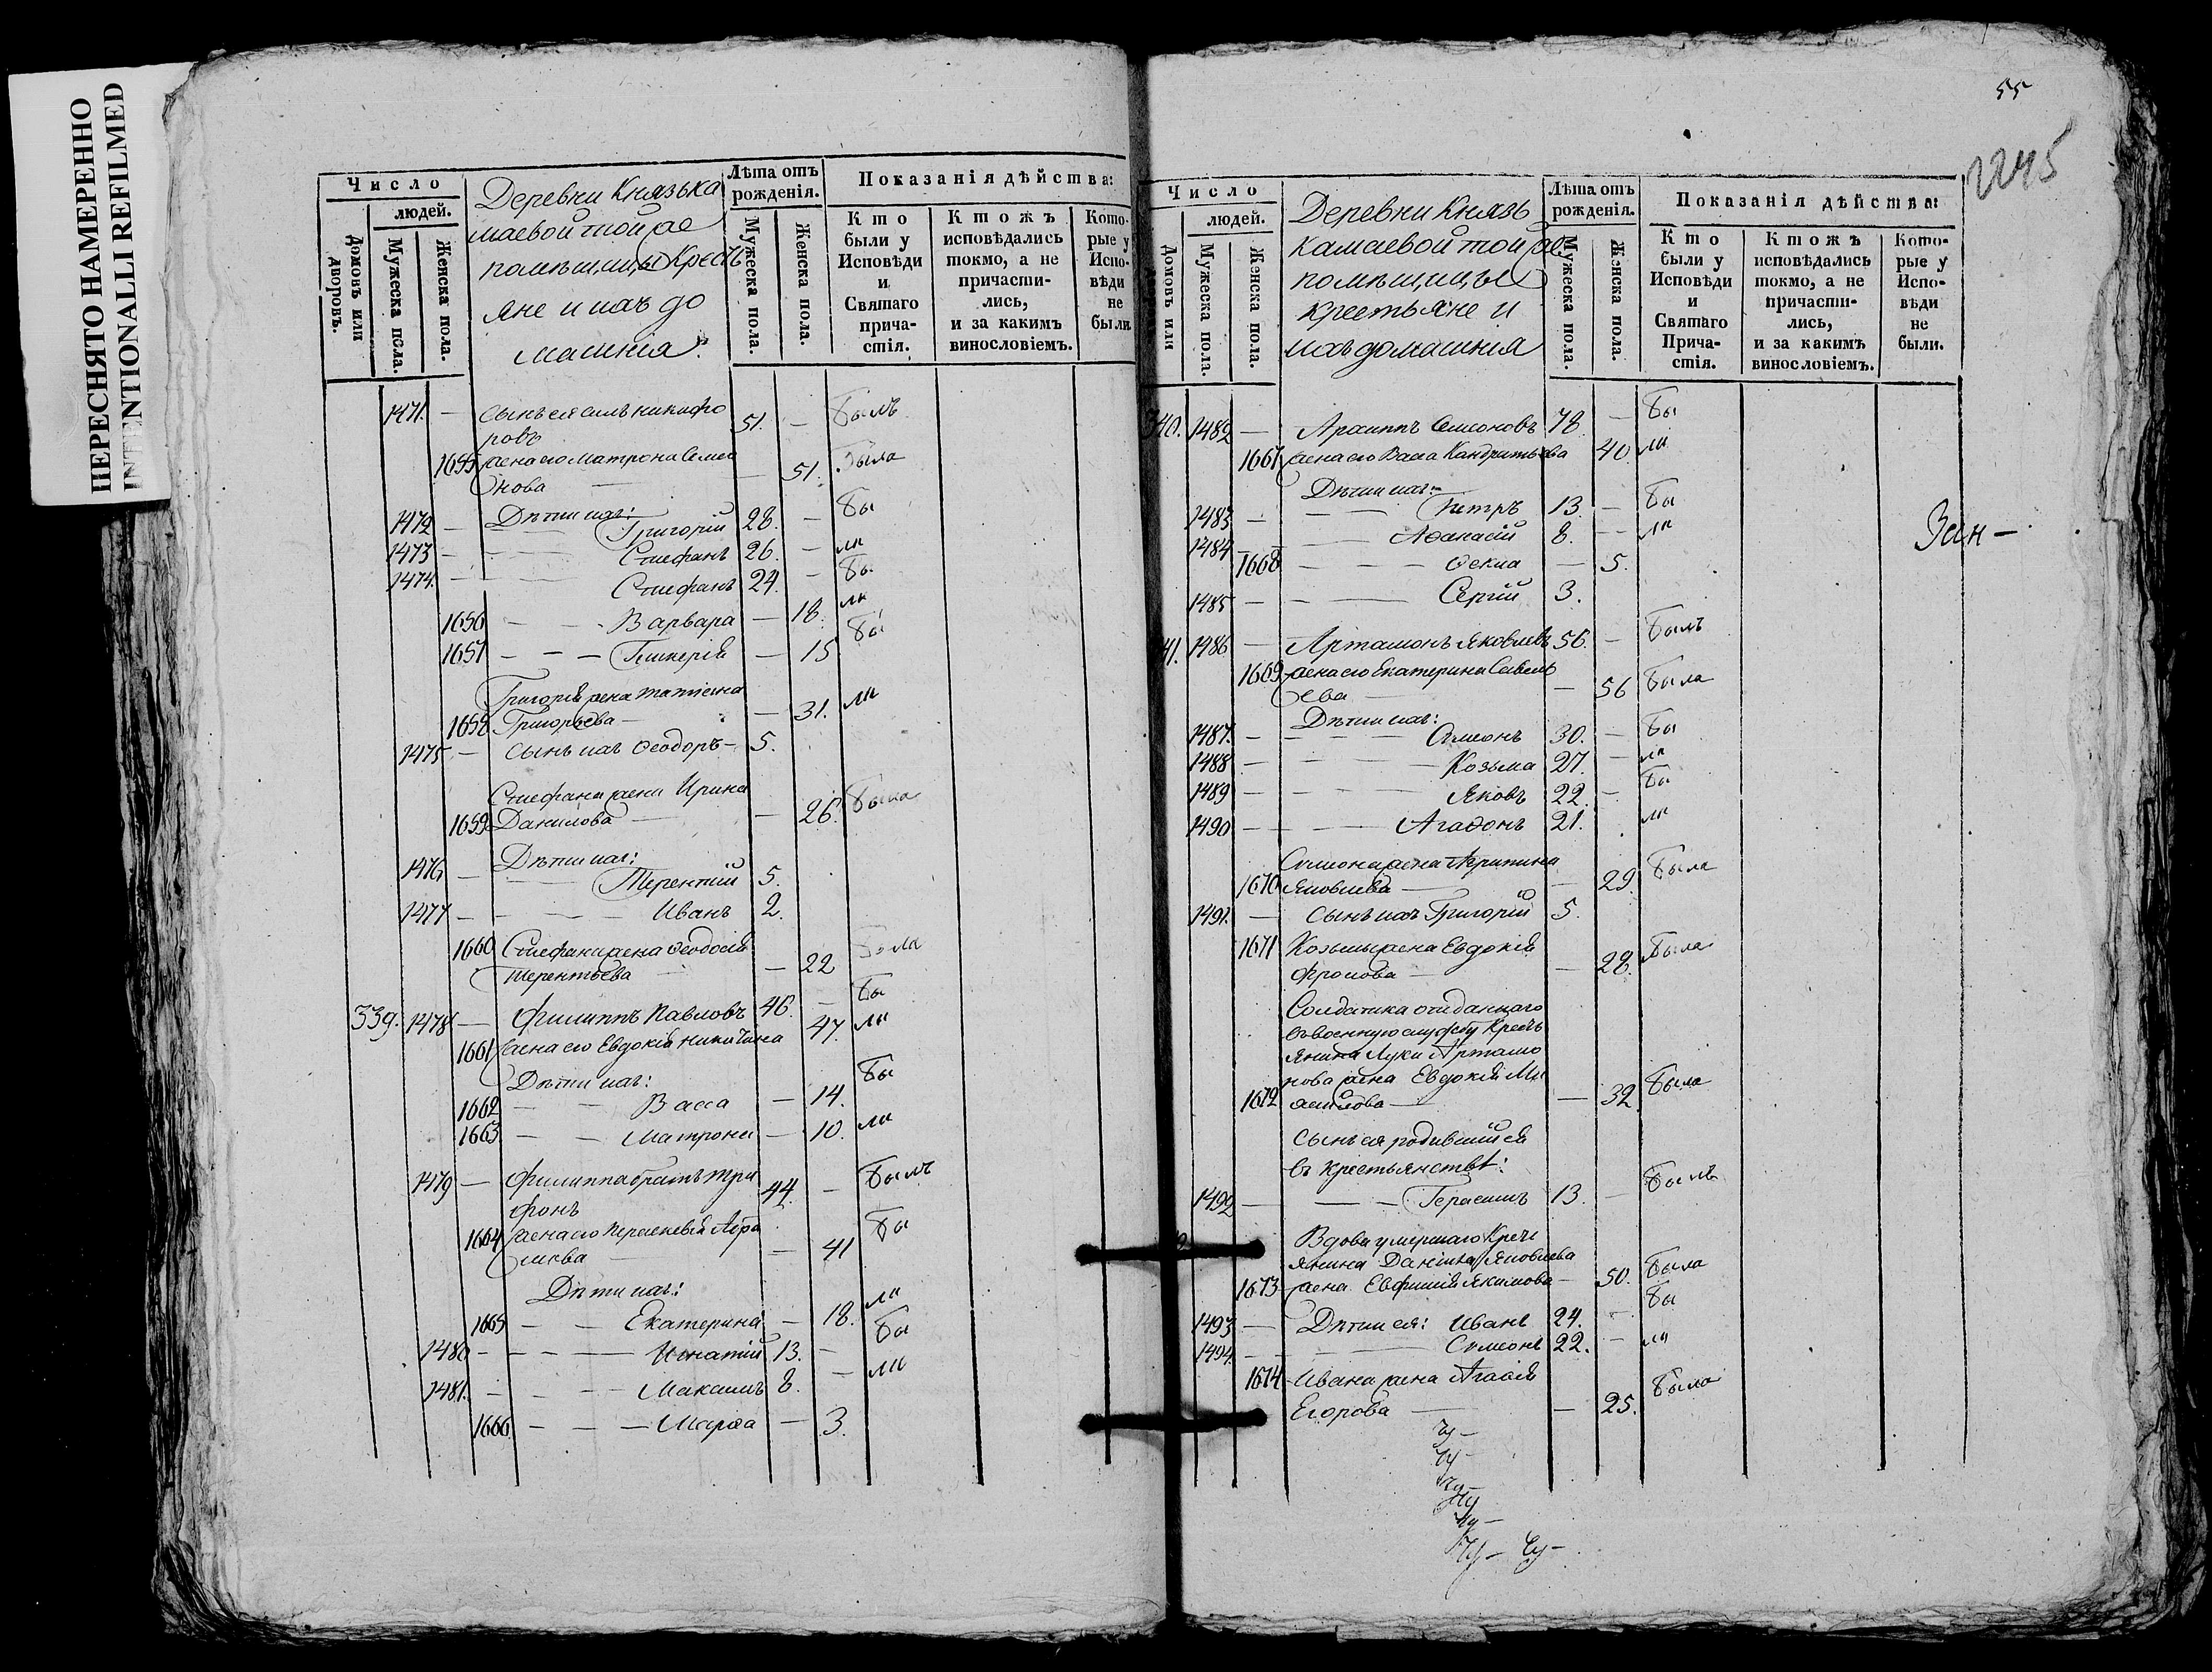 ПЕРЕСНЯТО НАМЕРЕННО
INTENTIONALLI REFILMED
Число
людей.
Домовъ или дворовъ.
Мужеска пола.
Женска пола.
Деревни Князька
маевой той же
помѣщицы Кресть
яне и ихъ до
машнія:
Лѣта отъ рожденія.
Мужеска пола.
Женска пола.
Показанія дѣйства:
Кто были у Исповѣди и Святаго причастія.
Ктожъ исповѣдались токмо, а не причастились, и за какимъ винословіемъ.
Которые у Исповѣди не были.
1471. — сынъ ея Никифо 51. — былъ
ровъ
1655 жена его Матрона Семе — 51. была
нова —
Дѣти ихъ:
1472 — Григорій 28. — бы
1473 — Стефанъ 26. — ли
1474. — Стефанъ 24. — бы
1656 — Варвара — 18. ли
1657 — Гликерія — 15 бы
Григорія жена Татіана
1658 Григорьева — 31. ли
1475 — сынъ ихъ Ѳеодоръ — 5.
Стефана жена Ирина
1659 Данилова — 26. была
Дѣти ихъ:
1476 — Терентій 5.
1477 — Иванъ 2.
1660 Стефана жена Ѳеодосія
Терентьева — 22 была
339. 1478 — Филиппъ Павловъ 46. — бы
1661 жена его Евдокія Никитина 47. ли
Дѣти ихъ:
1662 — Васса — 14. бы
1663 — Матрона — 10. ли
1479 — Филиппа братъ Три 44. — былъ
фонъ
1664 жена его Параскевія — 41 бы
Дѣти ихъ:
1665 — Екатерина — 18. ли
1480 — Игнатій 13. — бы
1481. — Максимъ 8. — ли
1666. — Марѳа — 3.
55
2245
Число
людей.
Домовъ или
Мужеска пола.
Женска пола.
Деревни Князь
камаевой той же
помѣщицы
крестьяне и
ихъ домашнія
Лѣта отъ рожденія.
Мужеска пола.
Женска пола.
Показанія дѣйства:
Кто были у Исповѣди и Святаго Причастія.
Ктожъ исповѣдались токмо, а не причастились, и за какимъ винословіемъ.
Которые у Исповѣди не были.
340. 1482 — Архиппъ Симеоновъ 78. — бы
1667 жена его Васса Кандратьева 40. ли
Дѣти ихъ:
1483 — Петръ 13. — бы
1484 — Аѳанасій 8. — ли
1668 — Ѳекла — 5.
1485 — Сергій 3.
41. 1486 — Артамонъ Яковлевъ 56. — былъ
1669 жена его Екатерина Савель
ева — 56 была
Дѣти ихъ:
1487. — Симеонъ 30. — бы
1488 — Козьма 27. — ли
1489 — Яковъ 22. — бы
1490 — Агаѳонъ 21. ли
Симеона жена Агрипина
1670 Яковлева — 29. была
1491. — сынъ ихъ Григорій 5.
1671 Козьмы жена Евдокія
Фролова — 28. была
Солдатика отданнаго
въ военную службу Кресть
янина Луки Артамо
нова жена Евдокія
1672 — 32. была
сынъ ея родившійся
въ крестьянствѣ:
1492 — Герасимъ 13. — былъ
Вдова умершаго Кресть
янина Даніила Яковлева
1673 жена Евфимія Якимова — 50. была
1493 — Дѣти ея: Иванъ 24. — бы
1494. — Симеонъ 22. — ли
1674 Ивана жена Агаѳія
Егорова — 25. была